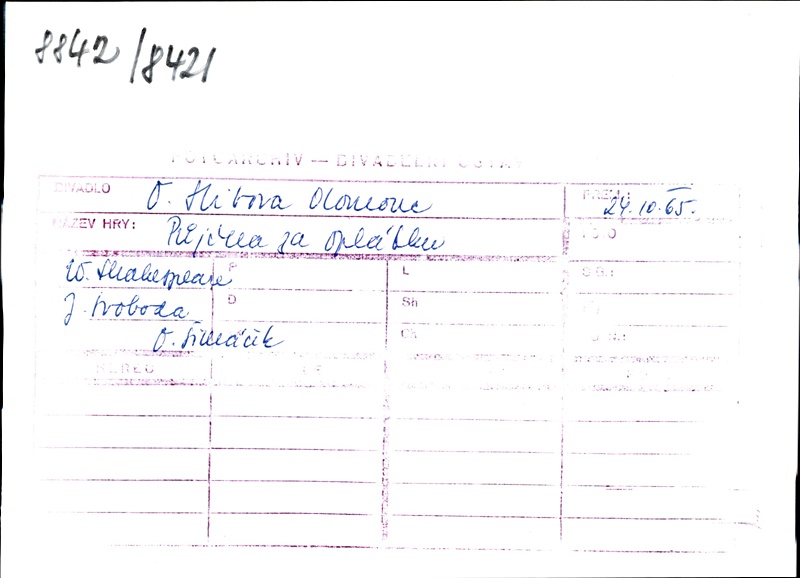 8842/8421
FOTOARCHIV — DIVADELNÍ ÚSTAV
DIVADLO O. Stibora Olomouc PREM.: 24.10.65.
NÁZEV HRY: Půjčka za oplátku
W. Shakespeare P L
J. Svoboda D Sh
O. Šimáček Ch
HEREC